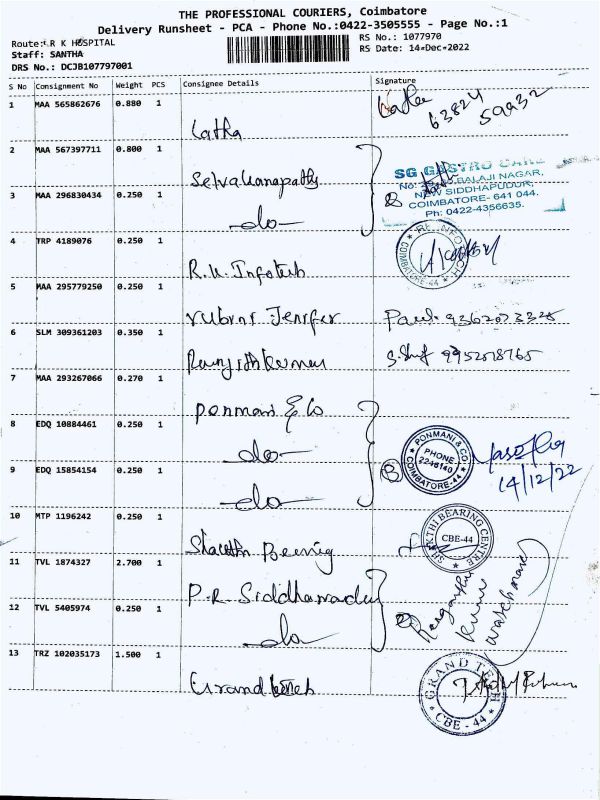 THE PROFESSIONAL COURIERS, Coimbatore
Delivery Runsheet - PCA - Phone No.:0422-3505555 - Page No.:1
Route: R K HOSPITAL
RS No.: 1077970
Staff: SANTHA
RS Date: 14-Dec-2022
DRS No.: DCJB107797001
S No Consignment No Weight PCS Consignee Details Signature
1 MAA 565862676 0.880 1
Latha 63824 59932
Latha
2 MAA 567397711 0.800 1
Selvakanapathy
SG GASTRO CARE
BALAJI NAGAR,
NEW SIDDHAPUDUR,
COIMBATORE- 641 044.
Ph: 0422-4356635.
3 MAA 296830434 0.250 1
-do-
4 TRP 4189076 0.250 1
R.K. Infotech
RK INFOTECH
COIMBATORE-44
5 MAA 295779250 0.250 1
Rubini Jenifer
6 SLM 309361203 0.350 1
Ranjithkumar 9952018765
7 MAA 293267066 0.270 1
Ponmani & Co
8 EDQ 10884461 0.250 1
-do-
PONMANI & CO
PHONE
COIMBATORE-44
14/12/22
9 EDQ 15854154 0.250 1
-do-
10 MTP 1196242 0.250 1
SHAKTHI BEARING CENTRE
CBE-44
11 TVL 1874327 2.700 1
P.R. Siddha
12 TVL 5405974 0.250 1
-do-
watchman
13 TRZ 102035173 1.500 1
Grand
GRAND
CBE - 44